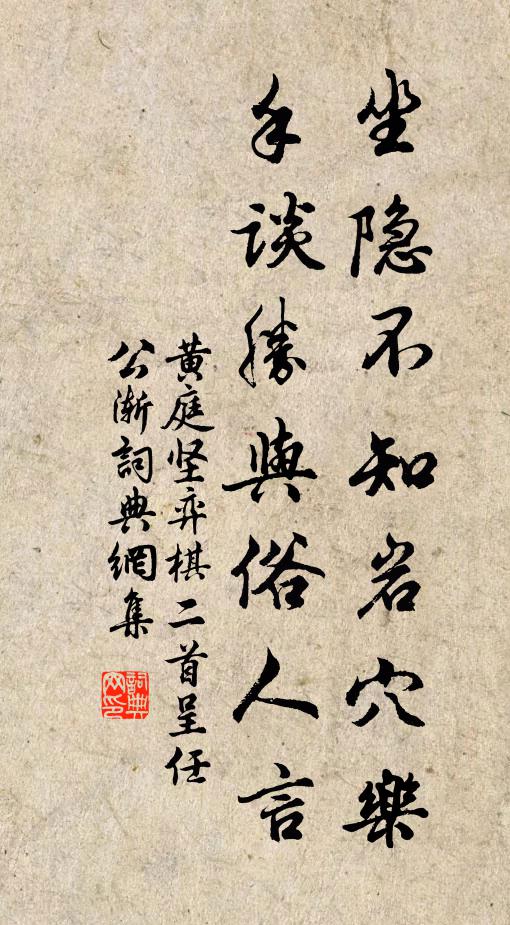 坐隐不知岩穴樂
手談勝與俗人言
黄庭坚弈棋二首呈任
公渐詞典網集
詞典網印